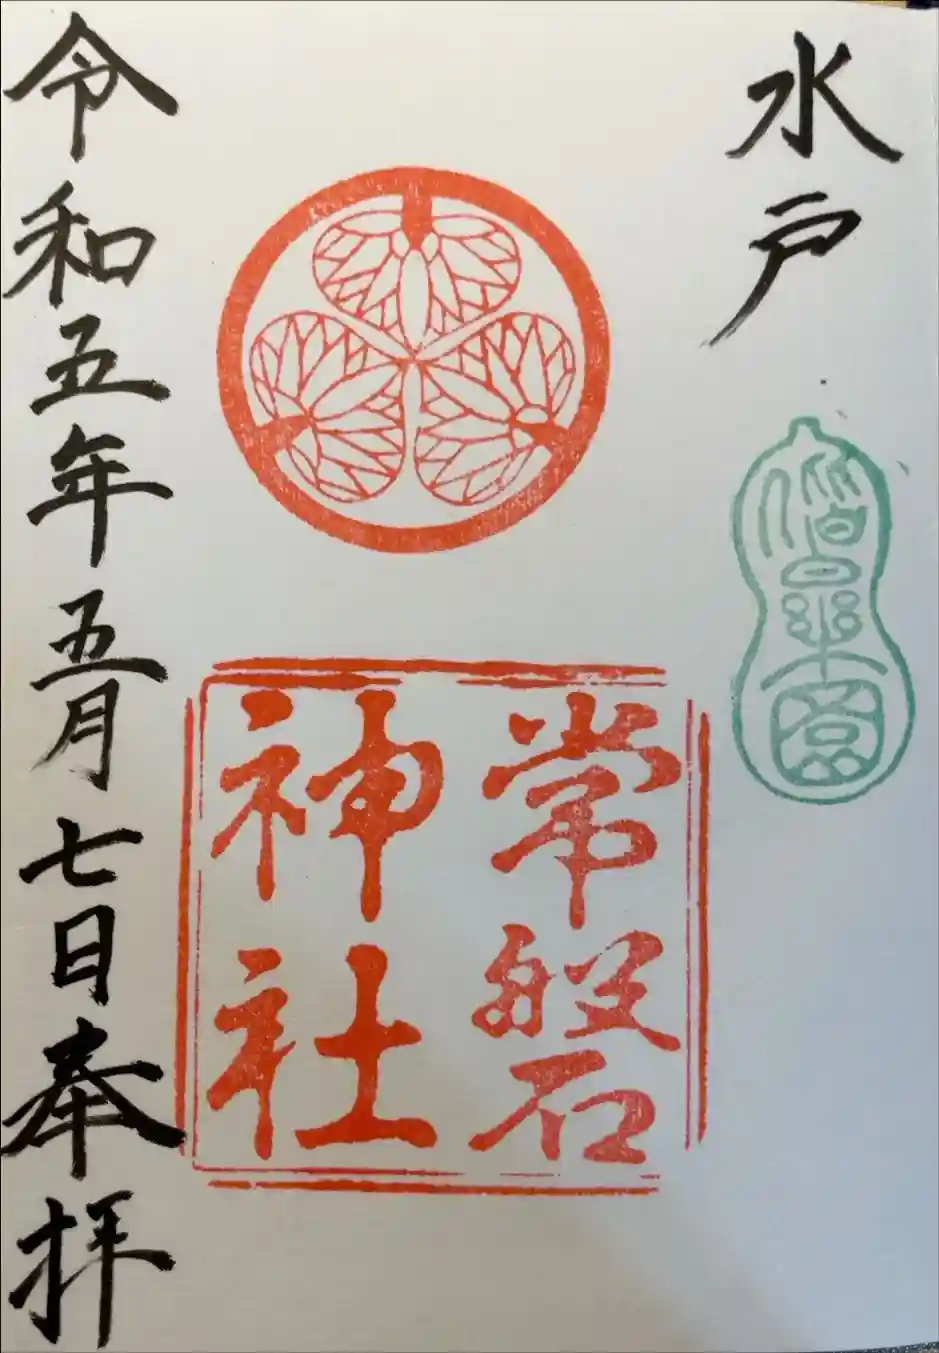 水戸
偕楽園
常磐
神社
令和五年五月七日奉拝